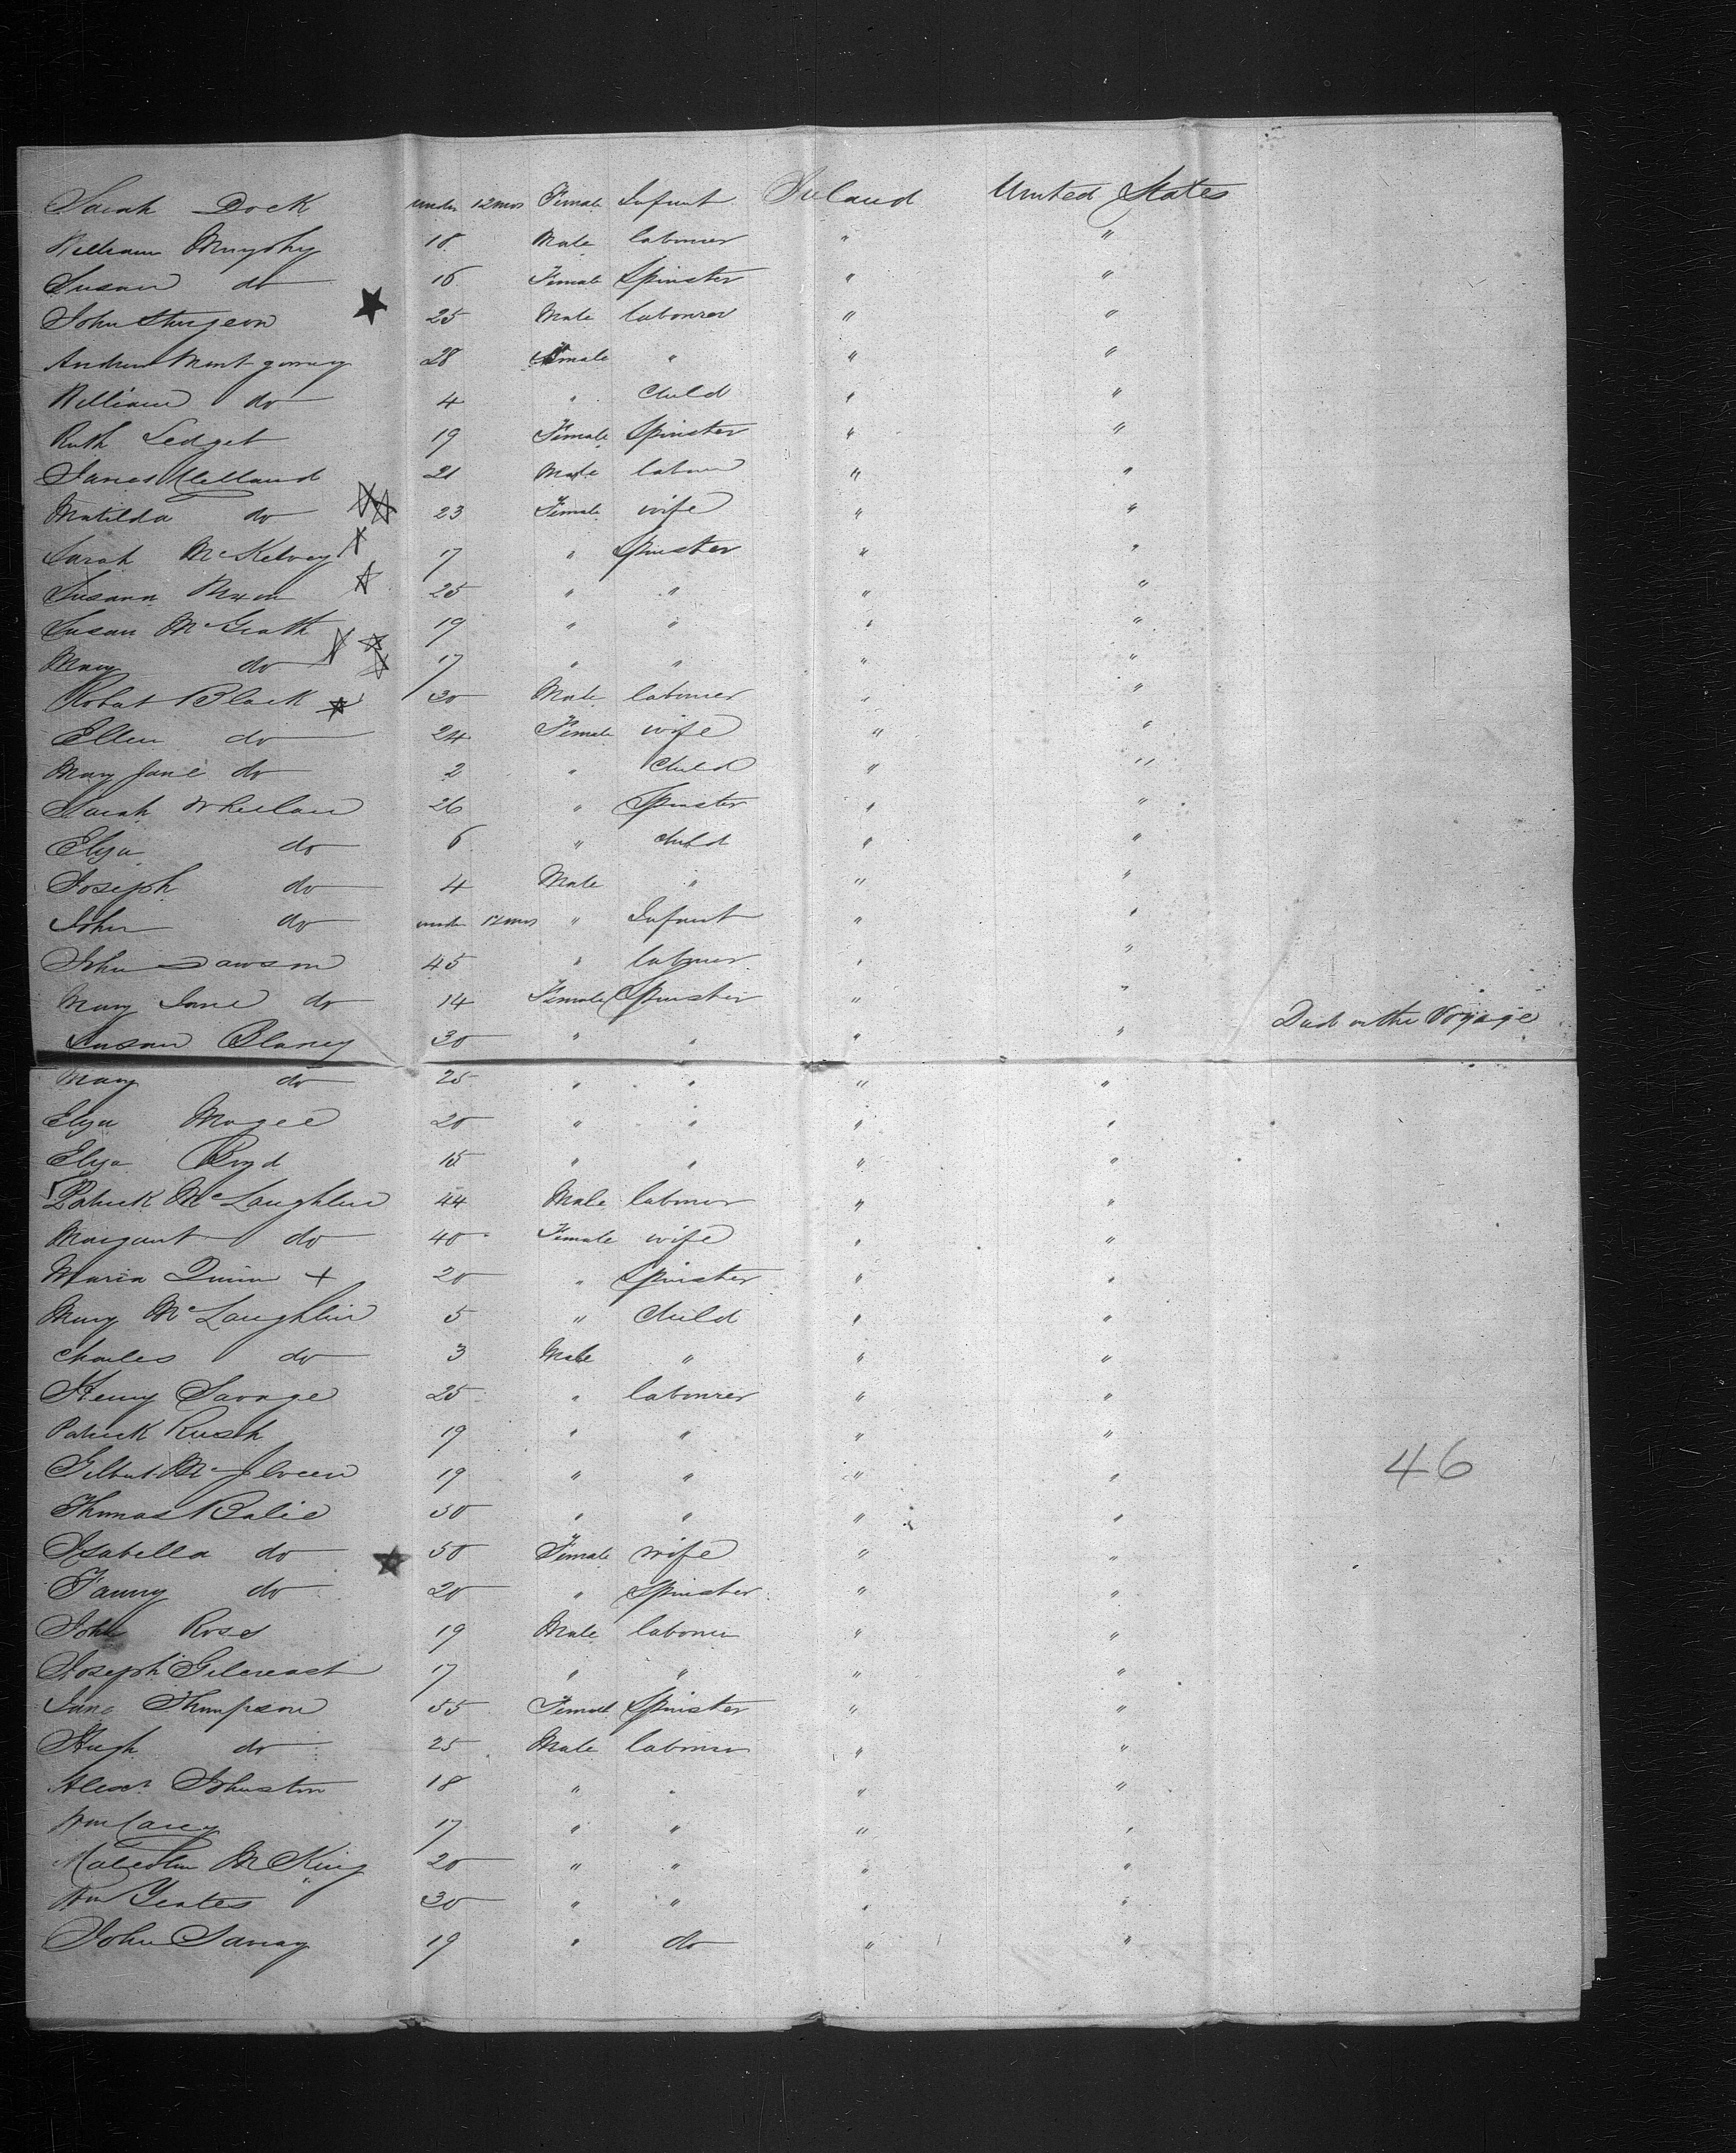 Sarah Dock under 12 mos Female Infant Ireland United States
William Murphy 18 Male labourer " "
Susan do 16 Female Spinster " "
John Sturgeon 25 Male labourer " "
Andrew Montgomery 28 Female " " "
William do 4 " Child " "
Ruth Ledget 19 Female Spinster " "
James Clelland 21 Male labourer " "
Matilda do 23 Female wife " "
Sarah McKelvey 17 " Spinster " "
Susann 25 " " " "
Susan McGrath 19 " " " "
Mary do 17 " " " "
Robert Black 30 Male labourer " "
Ellen do 24 Female wife " "
Mary Jane do 2 " Child " "
Sarah Wheelan 26 " Spinster " "
Eliza do 6 " child " "
Joseph do 4 Male " " "
John do under 12 mos " Infant " "
John Dawson 45 " labourer " "
Mary Jane do 14 Female Spinster " "
Susan Blaney 30 " " " " Died on the Voyage
Mary do 25 " " " "
Eliza Magee 20 " " " "
Eliza Boyd 15 " " " "
Patrick McLaughlin 44 Male labourer " "
Margaret do 40 Female wife " "
Maria Quinn + 20 " Spinster " "
Mary McLaughlin 5 " Child " "
Charles do 3 Male " " "
Henry Savage 25 " labourer " "
Patrick Rush 19 " " " "
Gilbert McIlveen 19 " " " "
Thomas Balie 50 " " " "
Isabella do 50 Female wife " "
Fanny do 20 " Spinster " "
John Ross 19 Male labourer " "
Joseph Gilcreast 17 " " " "
Jane Thompson 55 Female Spinster " "
Hugh do 25 Male labourer " "
Alexr Johnston 18 " " " "
Wm Carey 17 " " " "
Malcolm McKing 20 " " " "
Wm Yeates 30 " " " "
John 19 " do " "
46